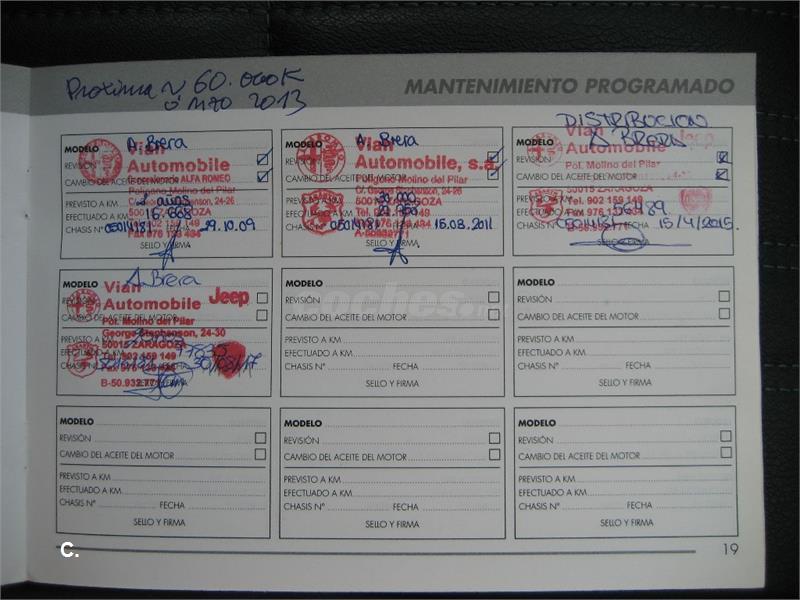 Proxima ~ 60.000K
ó Mzo 2013
MANTENIMIENTO PROGRAMADO
MODELO A. Brera
Vian
Automobile
REVISIÓN
Concesionario ALFA ROMEO
CAMBIO DEL ACEITE DEL MOTOR
Poligono Molino del Pilar
24-26
PREVISTO A KM 2 años
EFECTUADO A KM 16668
CHASIS Nº FECHA 29.10.09
SELLO Y FIRMA
MODELO A. Brera
Vian
Automobile, s.a.
REVISIÓN
CAMBIO DEL ACEITE DEL MOTOR
Poligono Molino del Pilar
C/. George Stephenson, 24-26
50015 ZARAGOZA
PREVISTO A KM
EFECTUADO A KM
CHASIS Nº FECHA 15.03.2011
SELLO Y FIRMA
DISTRIBUCION
MODELO A. BRERA
Vian
Automobile
Jeep
REVISIÓN
Pol. Molino del Pilar
CAMBIO DEL ACEITE DEL MOTOR
50015 ZARAGOZA
PREVISTO A KM
Tel. 902 159 149
EFECTUADO A KM
CHASIS Nº FECHA 15/4/2015.
SELLO Y FIRMA
A. Brera
MODELO
Vian
Automobile Jeep
REVISIÓN
CAMBIO DEL ACEITE DEL MOTOR
Pol. Molino del Pilar
George Stephenson, 24-30
50015 ZARAGOZA
PREVISTO A KM
Tel. 902 159 149
EFECTUADO A KM
CHASIS Nº
B-50.932.771
MODELO
REVISIÓN
CAMBIO DEL ACEITE DEL MOTOR
PREVISTO A KM
EFECTUADO A KM
CHASIS Nº FECHA
SELLO Y FIRMA
MODELO
REVISIÓN
CAMBIO DEL ACEITE DEL MOTOR
PREVISTO A KM
EFECTUADO A KM
CHASIS Nº FECHA
SELLO Y FIRMA
MODELO
REVISIÓN
CAMBIO DEL ACEITE DEL MOTOR
PREVISTO A KM
EFECTUADO A KM
CHASIS Nº FECHA
SELLO Y FIRMA
MODELO
REVISIÓN
CAMBIO DEL ACEITE DEL MOTOR
PREVISTO A KM
EFECTUADO A KM
CHASIS Nº FECHA
SELLO Y FIRMA
MODELO
REVISIÓN
CAMBIO DEL ACEITE DEL MOTOR
PREVISTO A KM
EFECTUADO A KM
CHASIS Nº FECHA
SELLO Y FIRMA
coches.
C.
19